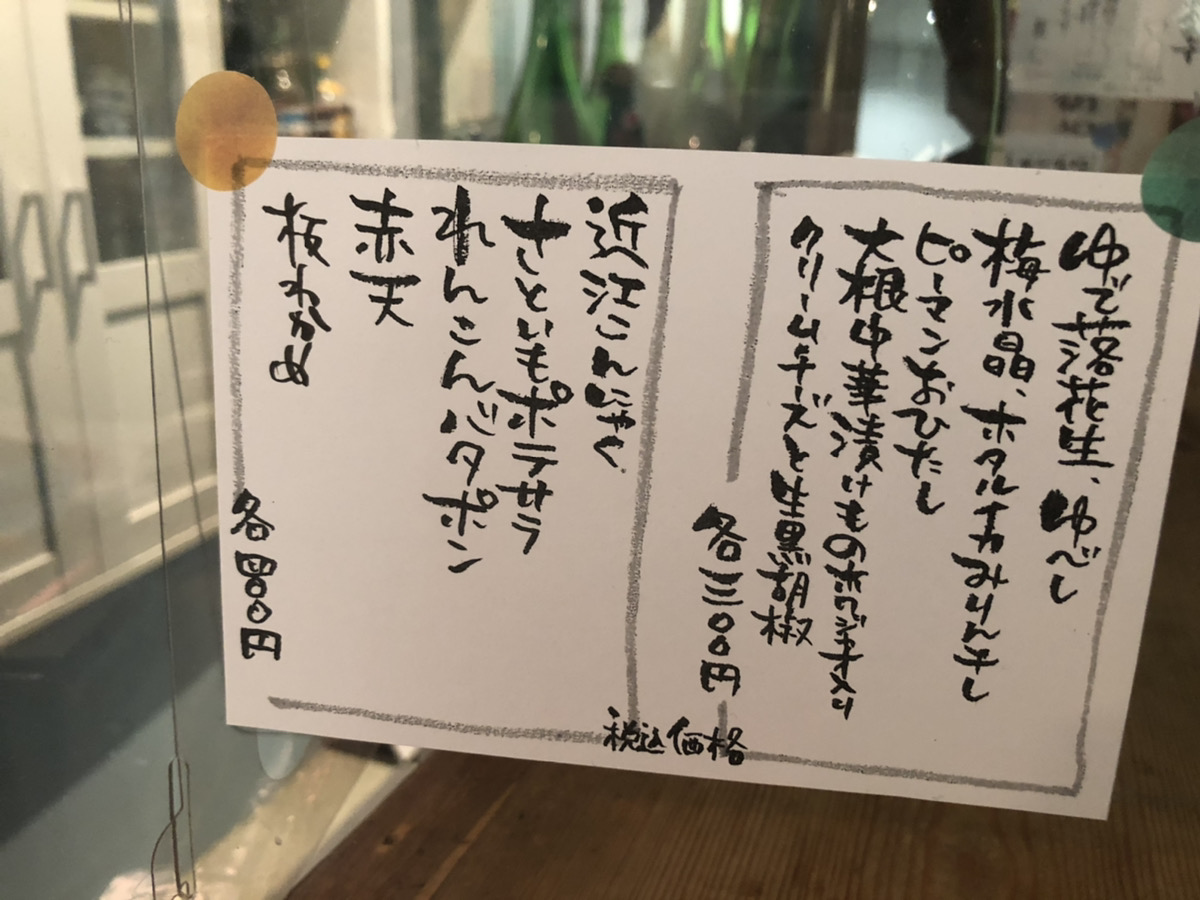 ゆで落花生、ゆべし
梅水晶、ホタルイカみりん干し
ピーマンおひたし
大根中華漬けものホワジャオ入り
クリームチーズと生黒胡椒
各三〇〇円
近江こんにゃく
さといもポテサラ
れんこんバタポン
赤天
枝わかめ
各四〇〇円
税込価格